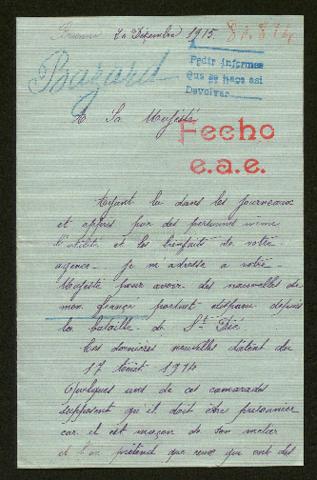 20 Décembre 1915.
Pedir informes
Que se haga asi
Devolver
Bazard
A Sa Majesté
Fecho
e.a.e.
Ayant lu dans les journeaux
et appris par des personnes même
l'utilité et les bienfaits de votre
agence. Je m'adresse a votre
Majesté pour avoir des nouvelles de
mon fiancé portant disparu depuis
la bataille de St Dié
Ces dernières nouvelles datent du
17 1914
Quelques uns de ces camarades
supposent qu'il doit être prisonnier
car il est maçon de son metier
et l'on prétend que ceux qui ont des